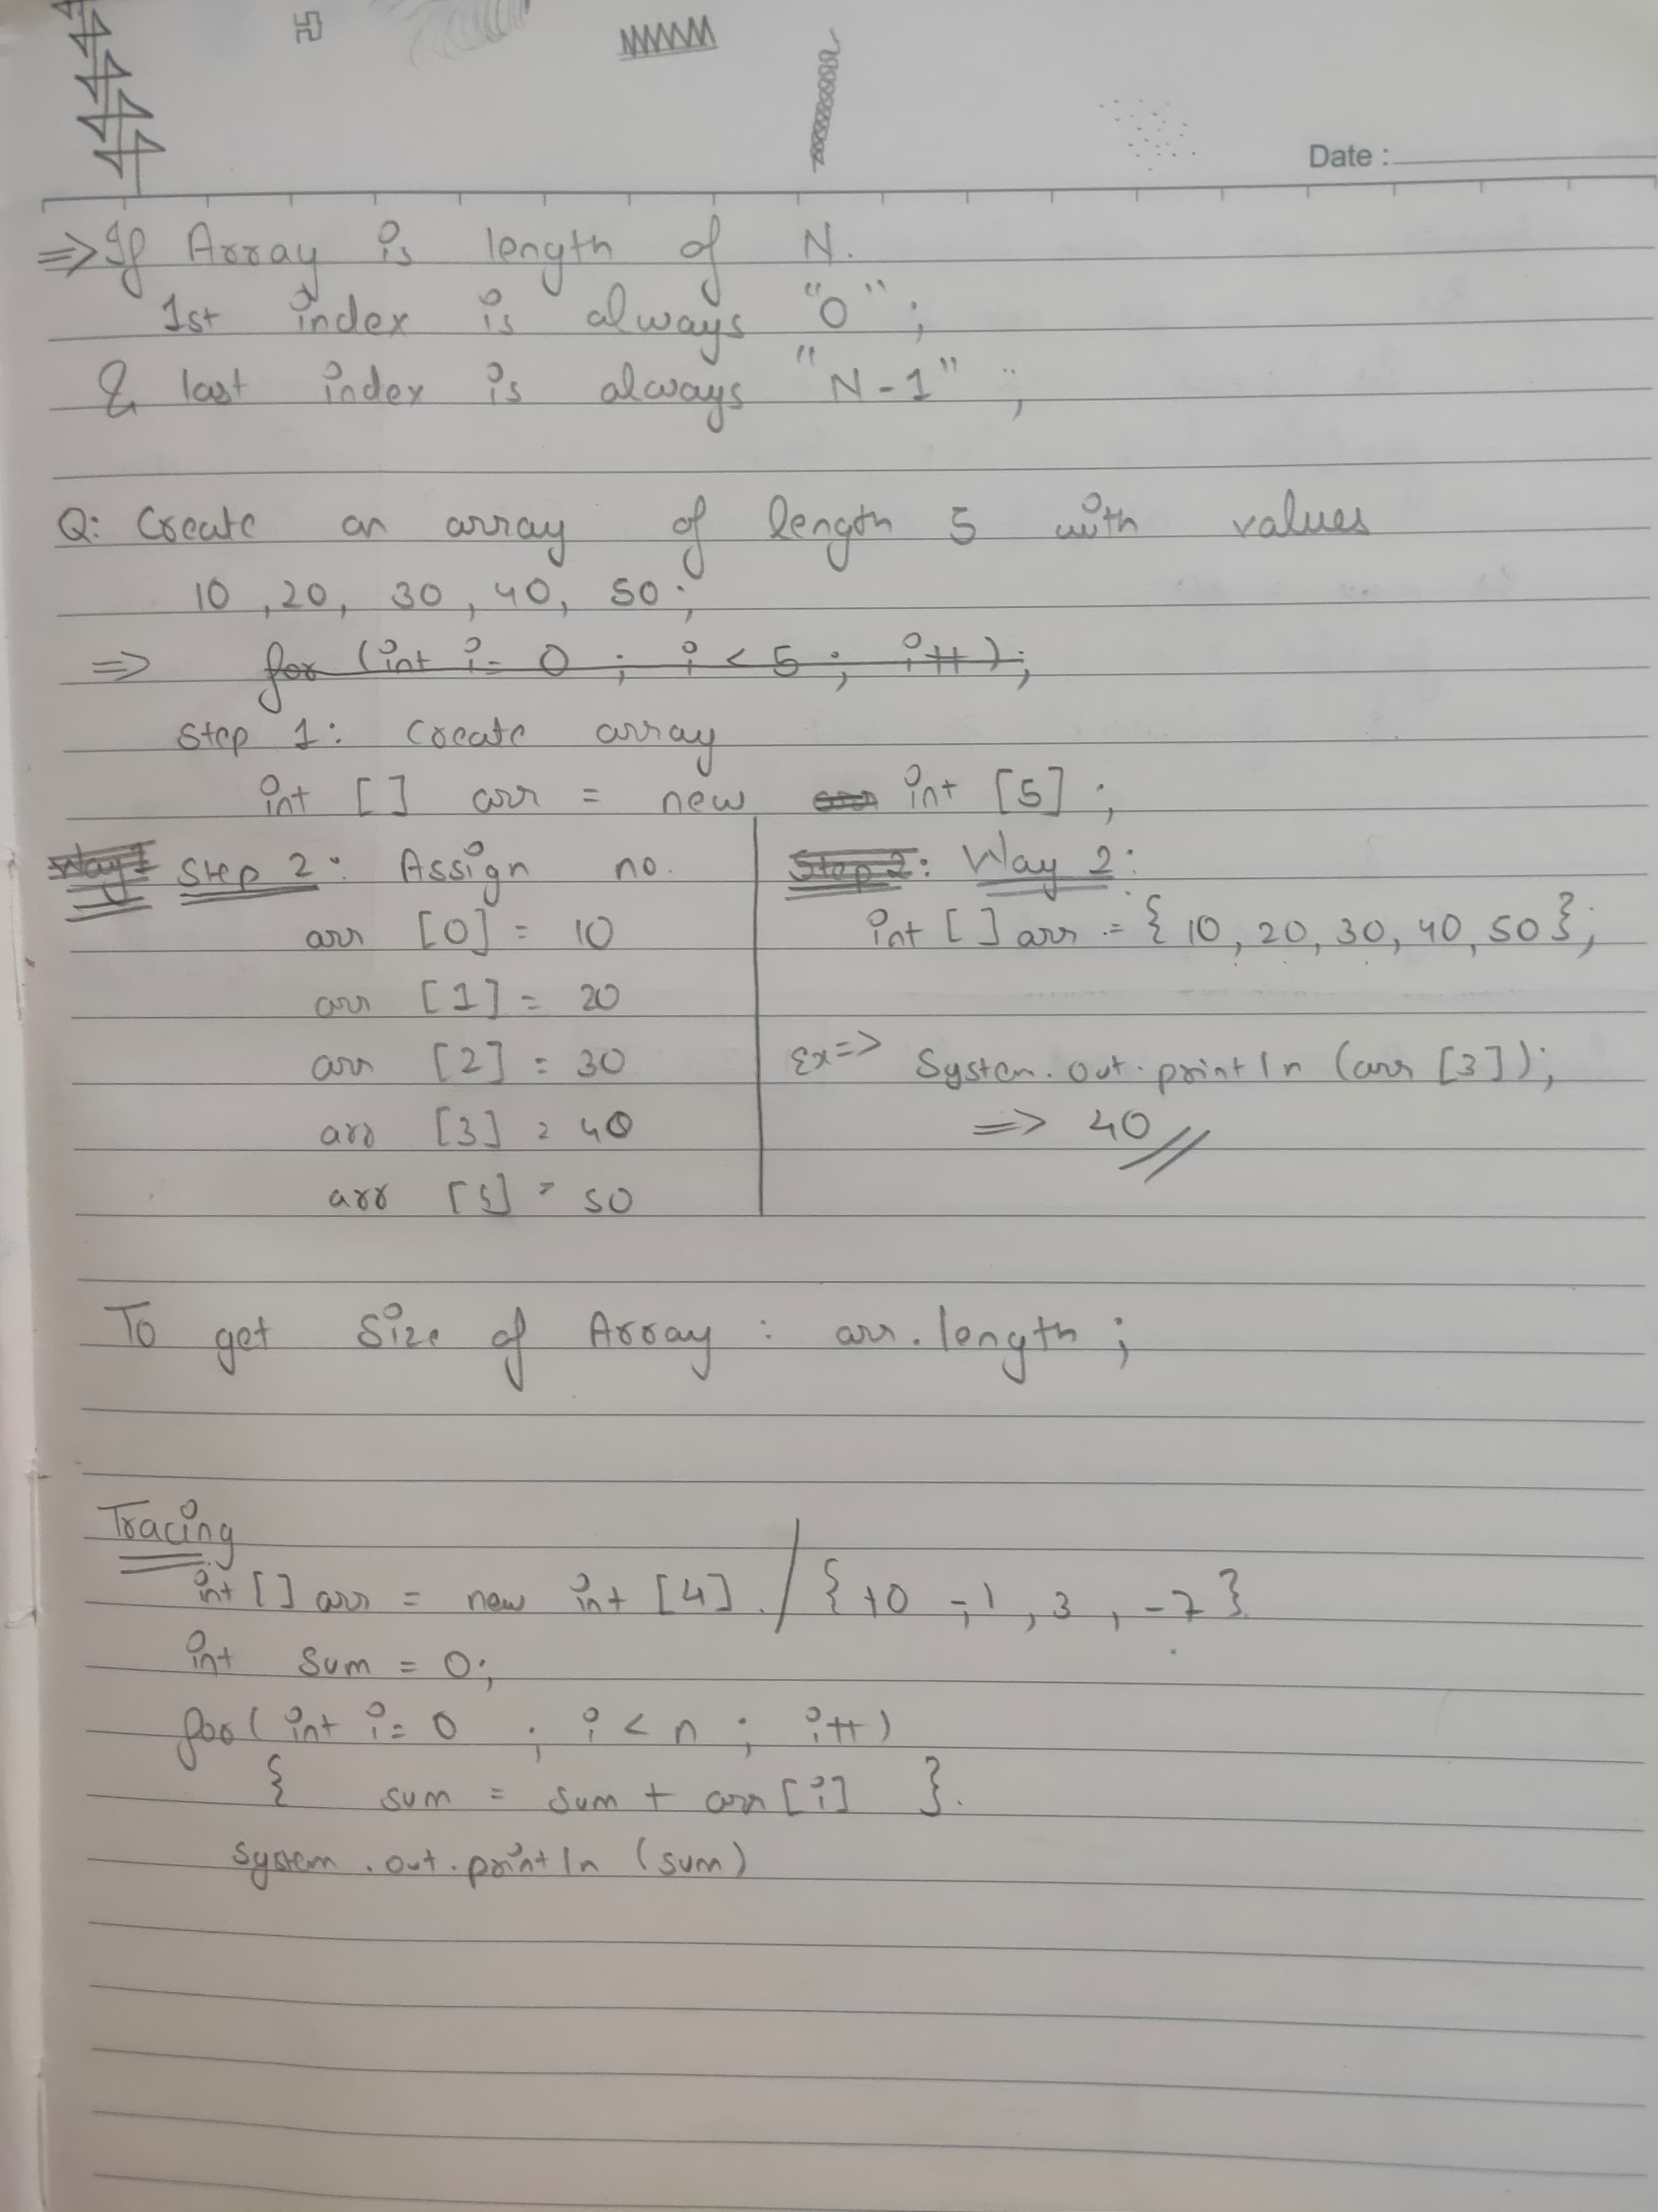 Date :
=> If Array is length of N.
1st index is always "0" ;
& last index is always "N-1" ;
Q: Create an array of length 5 with values
10 , 20, 30 , 40, 50 ;
=> for (int i = 0 ; i < 5 ; i++) ;
Step 1: Create array
int [ ] arr = new int [5] ;
Way 1 Step 2: Assign no.
arr [0] = 10
arr [1] = 20
arr [2] = 30
arr [3] = 40
arr [5] = 50
Step 2: Way 2:
int [ ] arr = { 10, 20, 30, 40, 50 };
Ex => System.out.println (arr [3]);
=> 40
To get Size of Array : arr.length ;
Tracing
int [ ] arr = new int [4] / { 10 , -1 , 3 , -7 }
int sum = 0;
for ( int i = 0 ; i < n ; i++ )
{ sum = sum + arr [i] }.
System.out.println (sum)